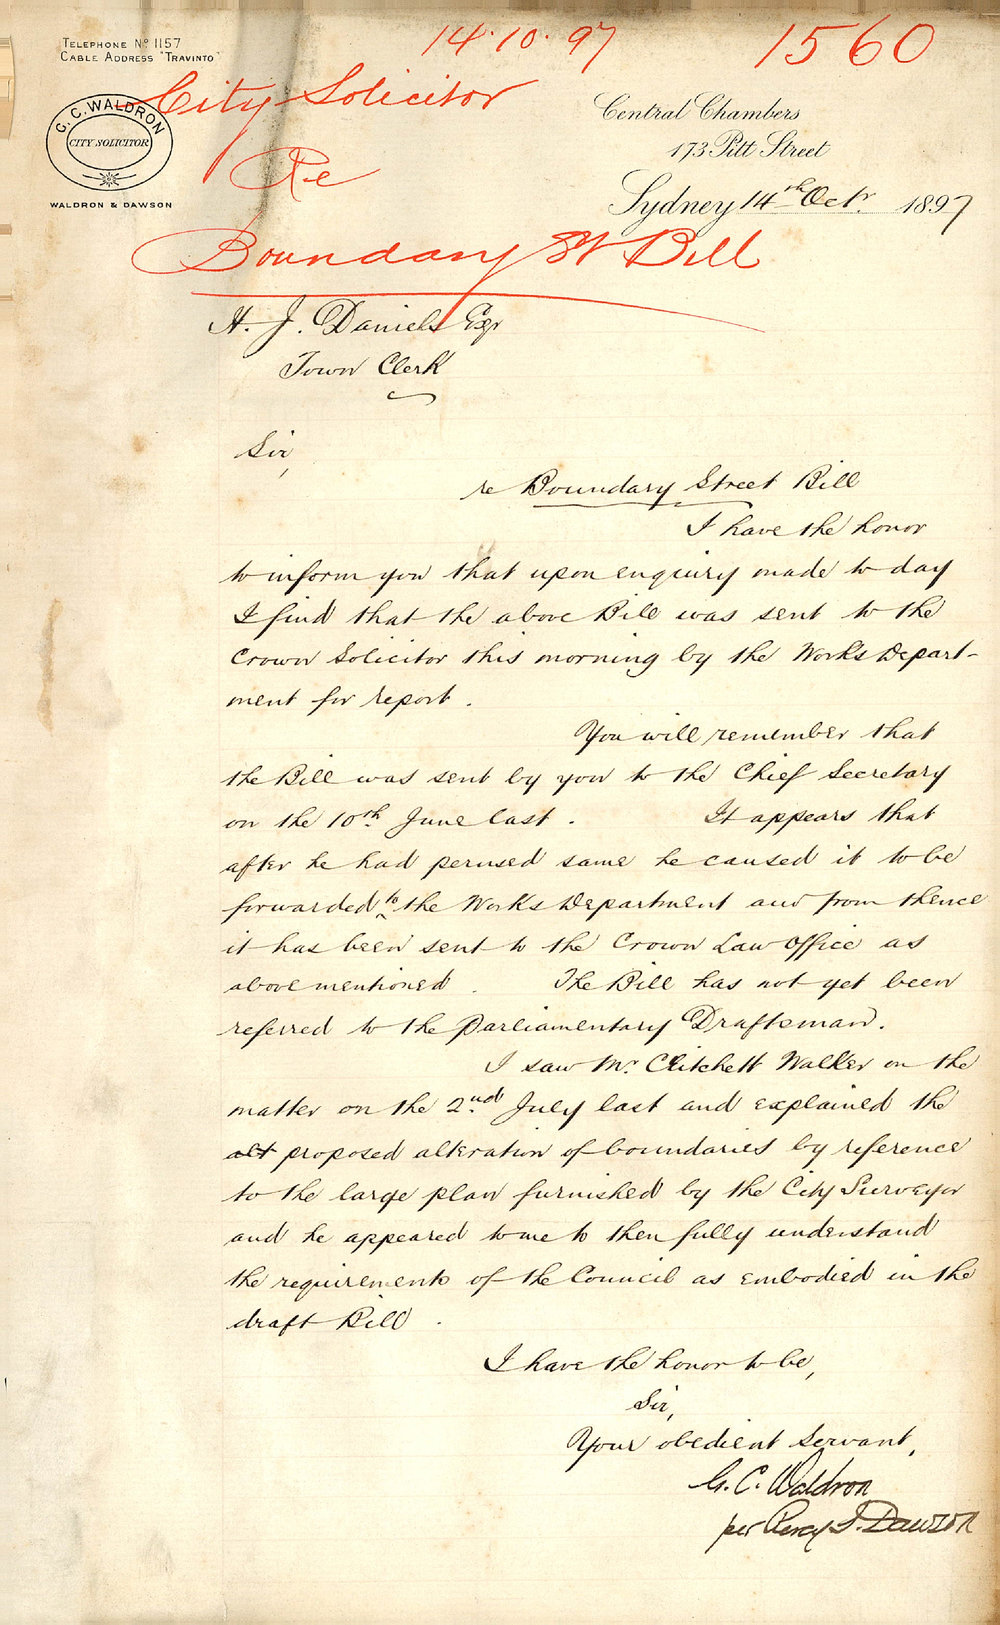 TELEPHONE Nº 1157
CABLE ADDRESS "TRAVINTO"
14.10.97
1560
City Solicitor
Re
Boundary St Bill
G. C. WALDRON
CITY SOLICITOR
WALDRON & DAWSON
Central Chambers
173 Pitt Street
Sydney 14th Octr. 1897
H. J. Daniels Esqr
Town Clerk
Sir,
re Boundary Street Bill
I have the honor
to inform you that upon enquiry made to day
I find that the above Bill was sent to the
Crown Solicitor this morning by the Works Depart-
ment for report.
You will remember that
the Bill was sent by you to the Chief Secretary
on the 10th June last. It appears that
after he had perused same he caused it to be
forwarded to the Works Department and from thence
it has been sent to the Crown Law Office as
above mentioned. The Bill has not yet been
referred to the Parliamentary Draftsman.
I saw Mr. Critchett Walker on the
matter on the 2nd July last and explained the
alt proposed alteration of boundaries by reference
to the large plan furnished by the City Surveyor
and he appeared to me to then fully understand
the requirements of the Council as embodied in the
draft Bill.
I have the honor to be,
Sir,
Your obedient Servant,
G. C. Waldron
per Percy J. Dawson